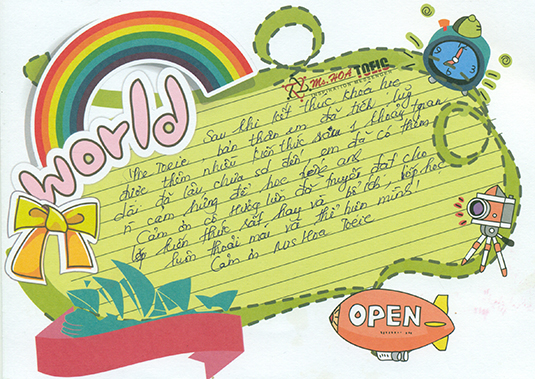 world
Ms. HOA TOEIC
Sau khi kết thúc khóa học
Pre Toeic, bản thân em đã tích lũy
được thêm nhiều kiến thức sau 1 khoảng thời gian
dài đã lâu chưa sờ đến, em đã có thêm
cảm hứng để học tiếng anh
Cảm ơn cô Hương luôn đã truyền đạt cho
lớp kiến thức rất hay và bổ ích, lớp học
luôn thoải mái và thể hiện mình!
Cảm ơn Ms Hoa Toeic
OPEN